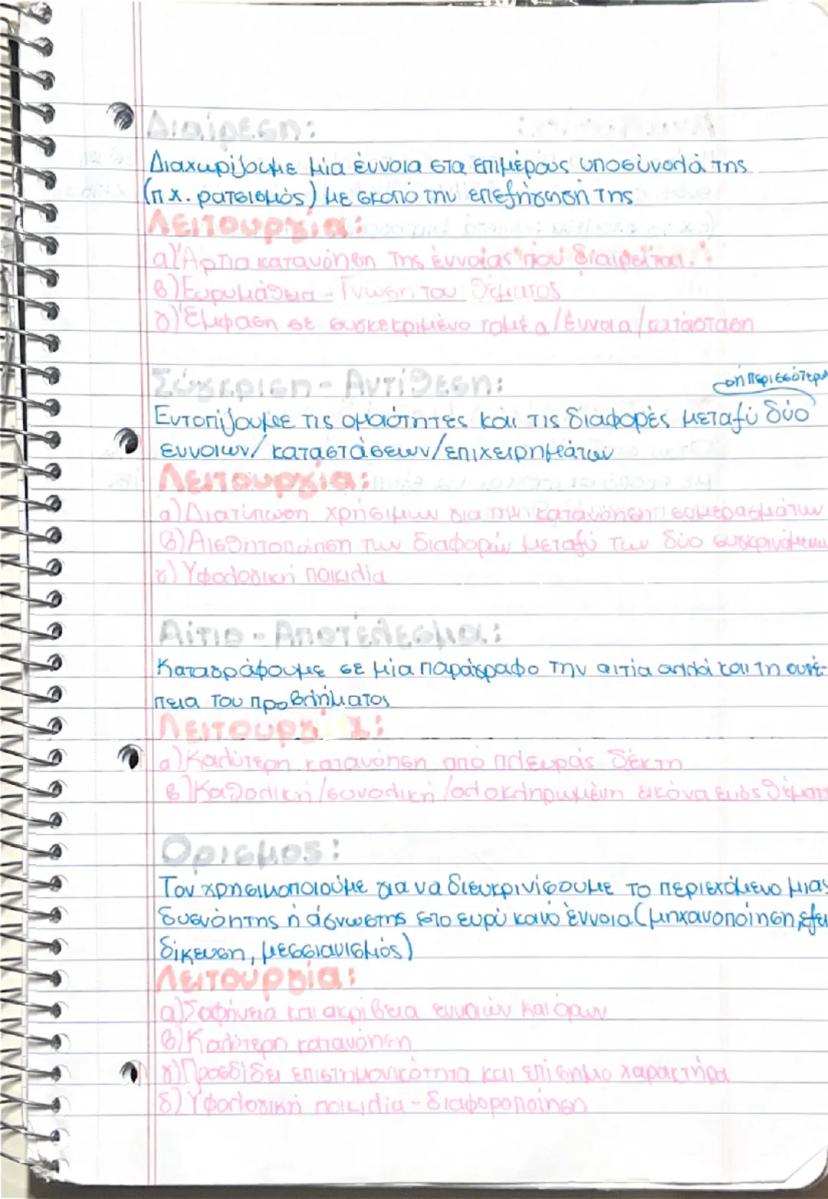 Διαίρεση:
Διαχωρίζουμε μία έννοια στα επιμέρους υποσύνολά της
(π.χ. ρατσισμός) με σκοπό την επεξήγησή της
Λειτουργία:
α) Άρτια κατανόηση της έννοιας που διαιρείται.
β) Ευρυμάθεια - Γνώση του θέματος
γ) Έμφαση σε συγκεκριμένο τομέα/έννοια/κατάσταση
Σύγκριση - Αντίθεση:
ή περισσότερων
Εντοπίζουμε τις ομοιότητες και τις διαφορές μεταξύ δύο
εννοιών/καταστάσεων/επιχειρημάτων
Λειτουργία:
α) Διατύπωση χρήσιμων για την κατανόηση συμπερασμάτων
β) Αισθητοποίηση των διαφορών μεταξύ των δύο
γ) Υφολογική ποικιλία
Αίτιο - Αποτέλεσμα:
Καταγράφουμε σε μία παράγραφο την αιτία αλλά και τη συνέ-
πεια του προβλήματος
Λειτουργία:
α) Καλύτερη κατανόηση από πλευράς δέκτη
β) Καθολική/συνολική/ολοκληρωμένη εικόνα ενός θέματος
Ορισμός:
Τον χρησιμοποιούμε για να διευκρινίσουμε το περιεχόμενο μιας
δυσνόητης ή άγνωστης στο ευρύ κοινό έννοια (μηχανοποίηση, εξει
δίκευση, μεσσιανισμός)
Λειτουργία:
α) Σαφήνεια και ακρίβεια εννοιών και όρων
β) Καλύτερη κατανόηση
γ) Προσδίδει επιστημονικότητα και επίσημο χαρακτήρα
δ) Υφολογική ποικιλία - διαφοροποίηση